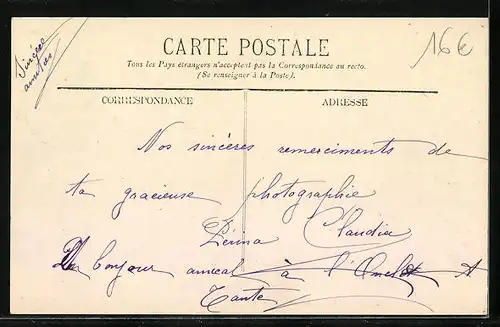 Sincère
amitiés
16€
CARTE POSTALE
Tous les Pays étrangers n'acceptent pas la Correspondance au recto.
(Se renseigner à la Poste).
CORRESPONDANCE
ADRESSE
Nos sincères remerciments de
ta gracieuse photographie
Claudia
bonjour amical à l'Oncle et
Tante